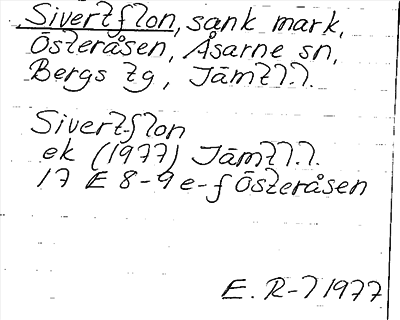 Sivertflon, sank mark,
Österåsen, Åsarne sn,
Bergs tg, Jämtl.
Sivertflon
ek (1977) Jämtl.
17 E 8-9 e-f Österåsen
E. R-l 1977